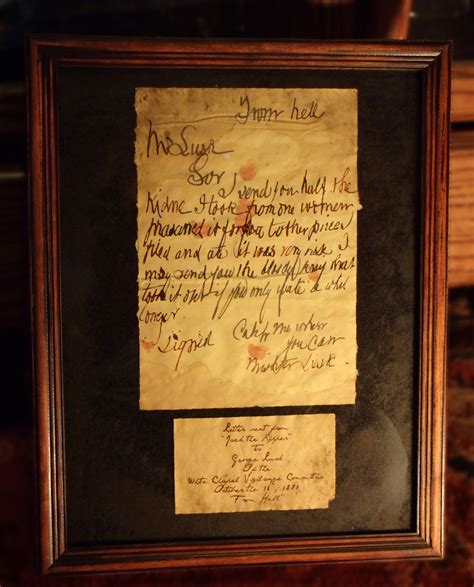 From hell
Mr Lusk
Sor
I send you half the
Kidne I took from one women
prasarved it for you tother piece I
fried and ate it was very nise I
may send you the bloody knif that
took it out if you only wate a whil
longer.
Signed Catch me when
you can
Mishter Lusk
Letter sent from
"Jack the Ripper"
to
George Lusk
of the
White Chapel Vigilance Committee
October the 16, 1888
"From Hell"